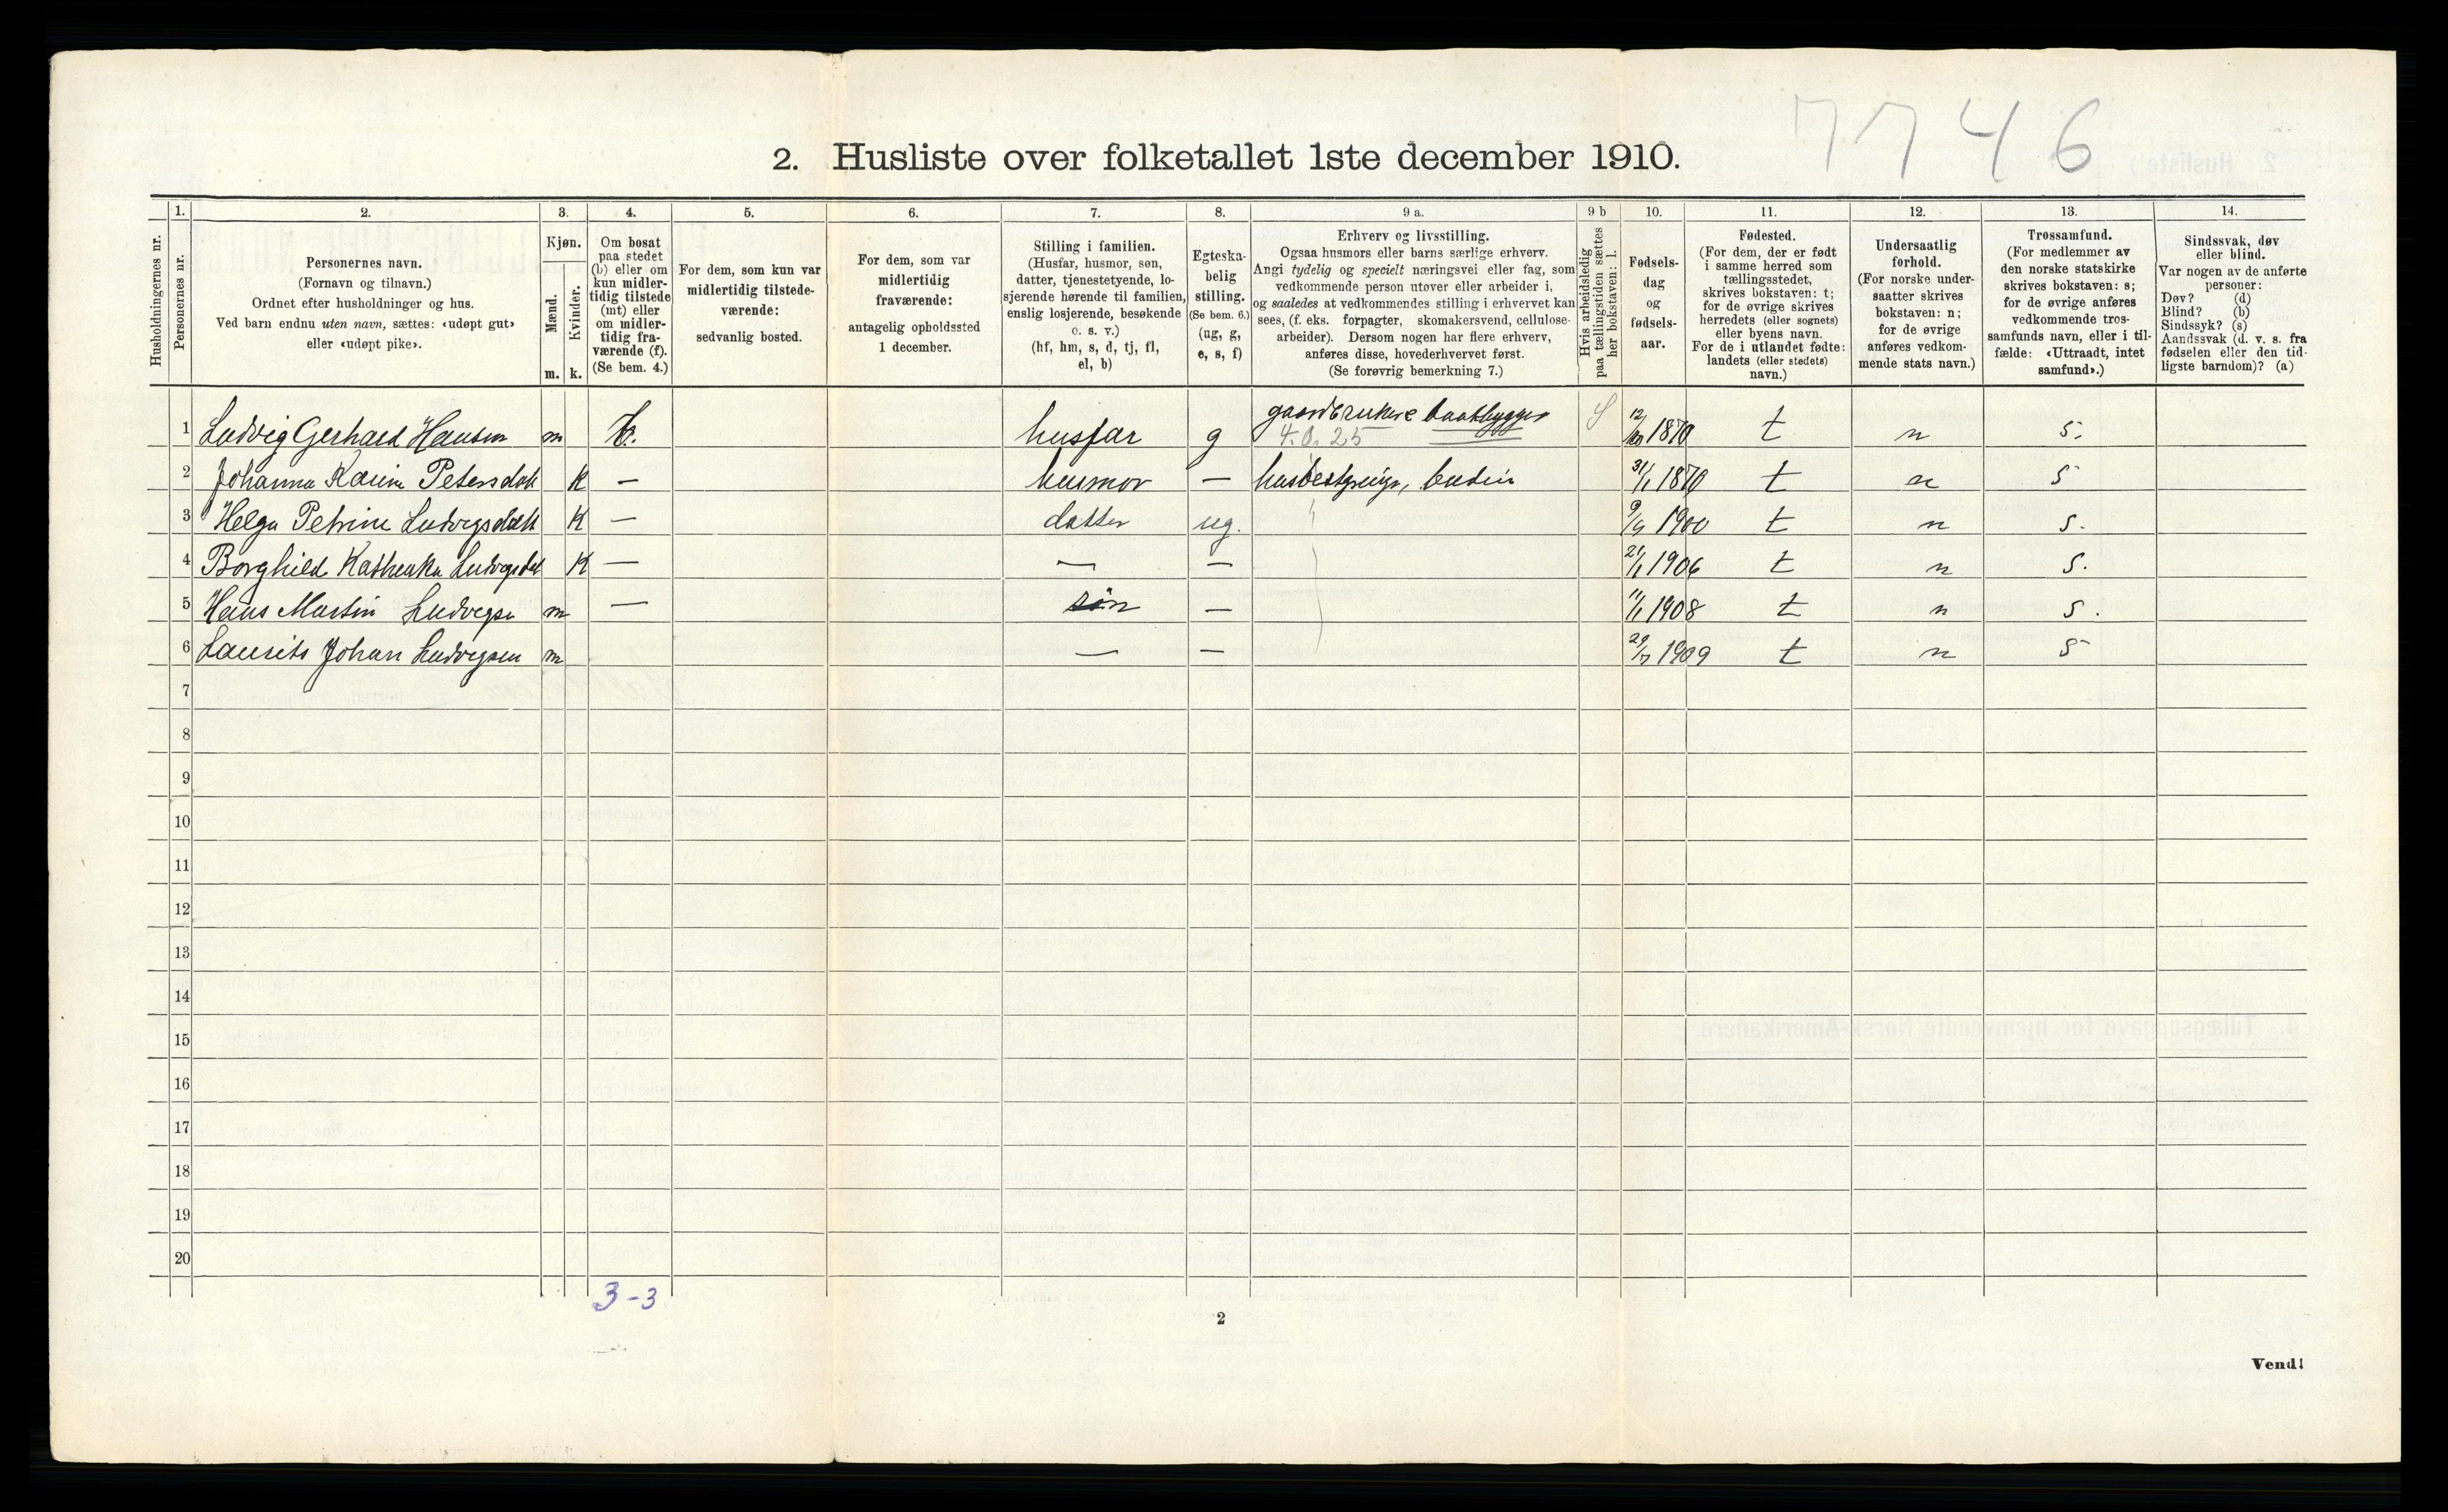 7746
2. Husliste over folketallet 1ste december 1910.
Husholdningernes nr.
1.
Personernes nr.
2.
Personernes navn.
(Fornavn og tilnavn.)
Ordnet efter husholdninger og hus.
Ved barn endnu uten navn, sættes: «udøpt gut»
eller «udøpt pike».
3.
Kjøn.
Mænd.
Kvinder.
m. k.
4.
Om bosat
paa stedet
(b) eller om
kun midler-
tidig tilstede
(mt) eller
om midler-
tidig fra-
værende (f).
(Se bem. 4.)
5.
For dem, som kun var
midlertidig tilstede-
værende:
sedvanlig bosted.
6.
For dem, som var
midlertidig
fraværende:
antagelig opholdssted
1 december.
7.
Stilling i familien.
(Husfar, husmor, søn,
datter, tjenestetyende, lo-
sjerende hørende til familien,
enslig losjerende, besøkende
o. s. v.)
(hf, hm, s, d, tj, fl,
el, b)
8.
Egteska-
belig
stilling.
(Se bem. 6.)
(ug, g,
e, s, f)
9 a.
Erhverv og livsstilling.
Ogsaa husmors eller barns særlige erhverv.
Angi tydelig og specielt næringsvei eller fag, som
vedkommende person utøver eller arbeider i,
og saaledes at vedkommendes stilling i erhvervet kan
sees, (f. eks. forpagter, skomakersvend, cellulose-
arbeider). Dersom nogen har flere erhverv,
anføres disse, hovederhvervet først.
(Se forøvrig bemerkning 7.)
9 b
Hvis arbeidsledig
paa tællingstiden sættes
her bokstaven: l.
10.
Fødsels-
dag
og
fødsels-
aar.
11.
Fødested.
(For dem, der er født
i samme herred som
tællingsstedet,
skrives bokstaven: t;
for de øvrige skrives
herredets (eller sognets)
eller byens navn.
For de i utlandet fødte:
landets (eller stedets)
navn.)
12.
Undersaatlig
forhold.
(For norske under-
saatter skrives
bokstaven: n;
for de øvrige
anføres vedkom-
mende stats navn.)
13.
Trossamfund.
(For medlemmer av
den norske statskirke
skrives bokstaven: s;
for de øvrige anføres
vedkommende tros-
samfunds navn, eller i til-
fælde: «Uttraadt, intet
samfund».)
14.
Sindssvak, døv
eller blind.
Var nogen av de anførte
personer:
Døv? (d)
Blind? (b)
Sindssyk? (s)
Aandssvak (d. v. s. fra
fødselen eller den tid-
ligste barndom)? (a)
1 Ludvig Gerhard Hansen m b. husfar g gaardbruker baatbygger 4.0.25 12/ 1870 t n s.
2 Johanna Karine Petersdatt K — husmor — husbestyreinge, budeie 31/1 1870 t n s
3 Helga Petrine Ludvigsdatt K — datter ug. 9/9 1900 t n s.
4 Borghild Kathinka Ludvigsdat K — — — 21/1 1906 t n s.
5 Hans Martin Ludvigsen m — søn — 11/1 1908 t n s.
6 Laurits Johan Ludvigsen m — — 29/7 1909 t n s
7
8
9
10
11
12
13
14
15
16
17
18
19
20
3-3
2
Vend!